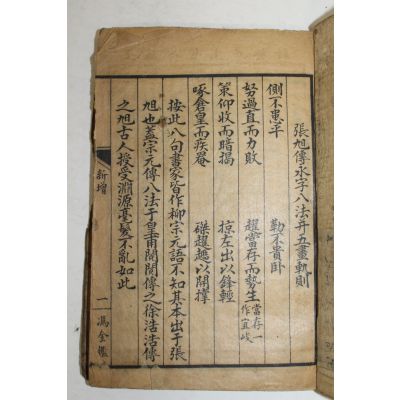 張旭傳永字八法幷五畫軌則
側不愚平　勒不貴臥
努過直而力敗　趯當存而勢生當存一作宜峻
策仰收而暗揭　掠左出以鋒輕
啄倉皇而疾罨　磔趞趬以開撑
按此八句書家皆作柳宗元語不知其本出于張
旭也蓋宗元傳八法于皇甫閱閱傳之徐浩浩傳
之旭古人授受淵源毫髮不亂如此
新增
一
馮全